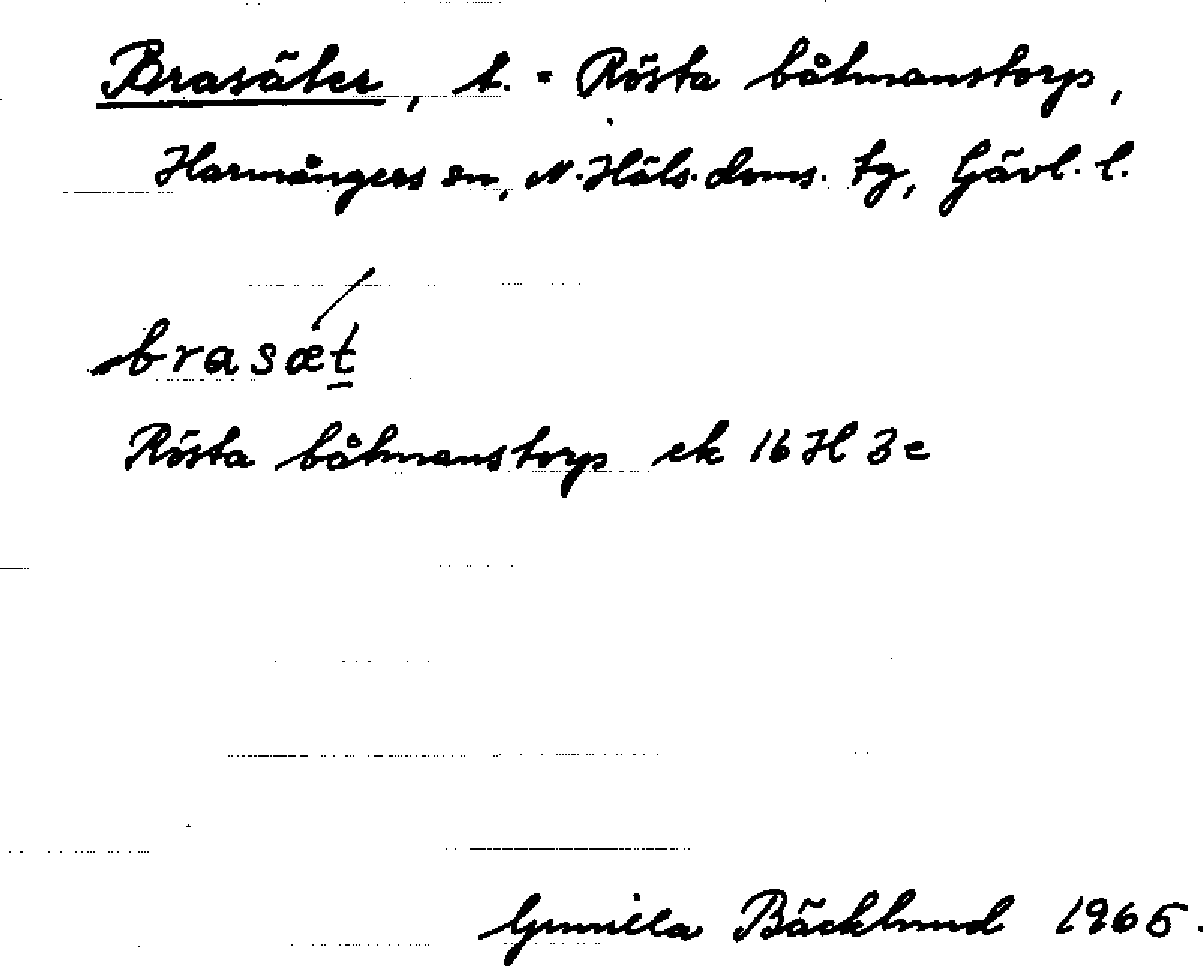 Brasäter, t. = Rösta båtmanstorp,
Harmångers sn, N. Häls. doms. tg, Gävl. l.
brasæt
Rösta båtmanstorp ek 16 H 3 e
Gunilla Bäcklund 1965.